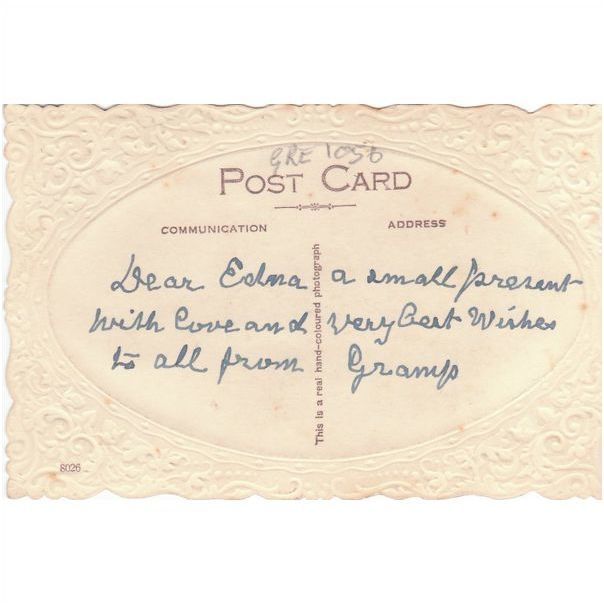 GRE 1056
POST CARD
COMMUNICATION
ADDRESS
Dear Edna a small present
with Love and very Best Wishes
to all from Gramp
This is a real hand-coloured photograph
8026